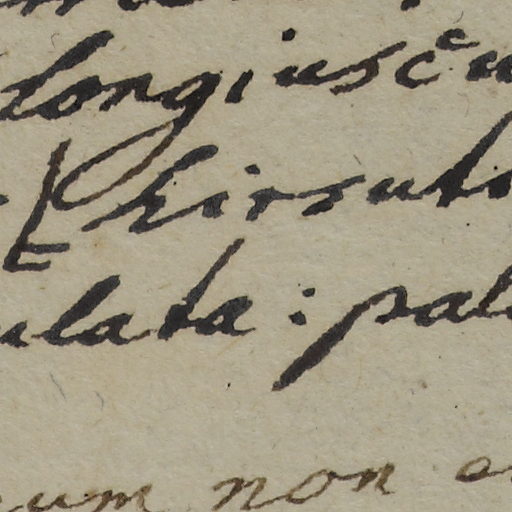 longiuscu
[hirsuto
ulata: pal
um non e